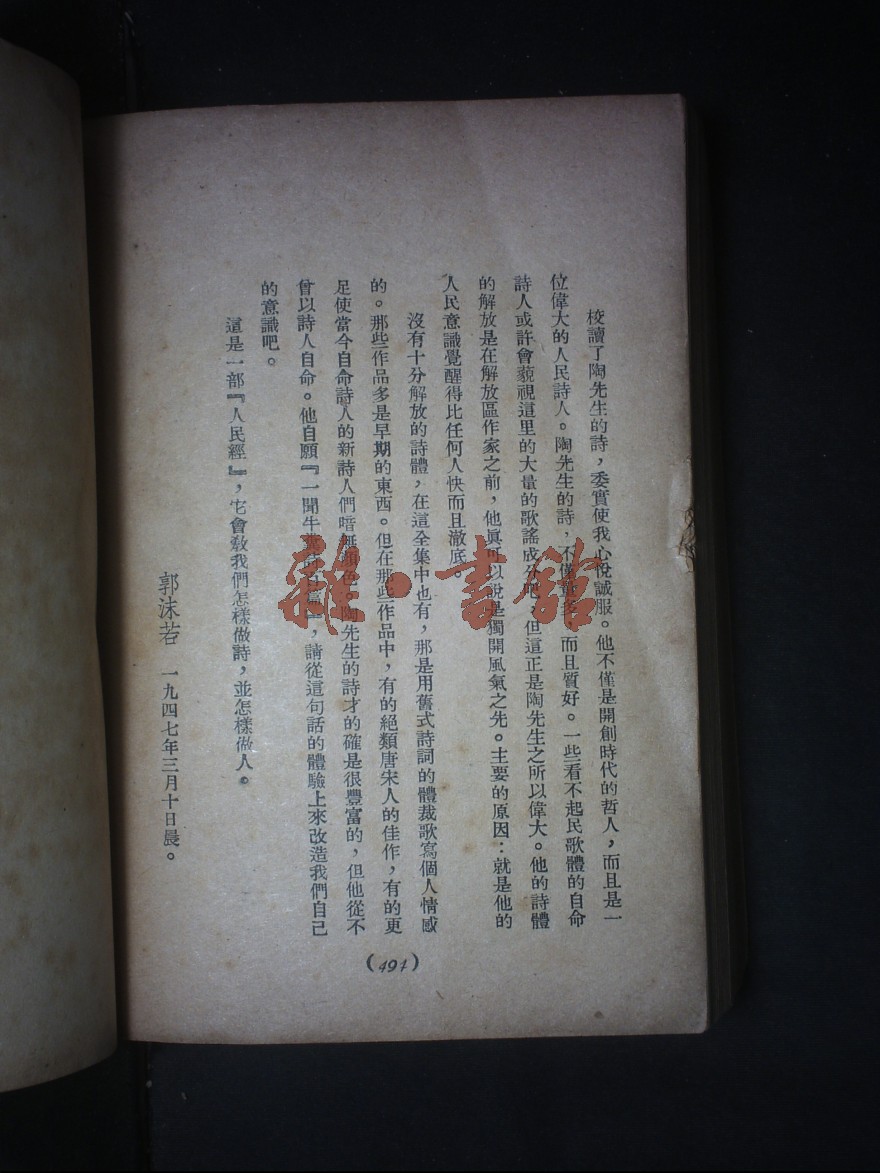 校讀了陶先生的詩，委實使我心悅誠服。他不僅是開創時代的哲人，而且是一
位偉大的人民詩人。陶先生的詩，不僅量多，而且質好。一些看不起民歌體的自命
詩人或許會藐視這里的大量的歌謠成分吧，但這正是陶先生之所以偉大。他的詩體
的解放是在解放區作家之前，他眞可以說是獨開風氣之先。主要的原因：就是他的
人民意識覺醒得比任何人快而且澈底。
沒有十分解放的詩體，在這全集中也有，那是用舊式詩詞的體裁歌寫個人情感
的。那些作品多是早期的東西。但在那些作品中，有的絕類唐宋人的佳作，有的更
足使當今自命詩人的新詩人們暗無顏色。陶先生的詩才的確是很豐富的，但他從不
曾以詩人自命。他自願『一聞牛糞詩百篇』，請從這句話的體驗上來改造我們自己
的意識吧。
這是一部『人民經』，它會敎我們怎樣做詩，並怎樣做人。
郭沫若　一九四七年三月十日晨。
(494)
雜·書館